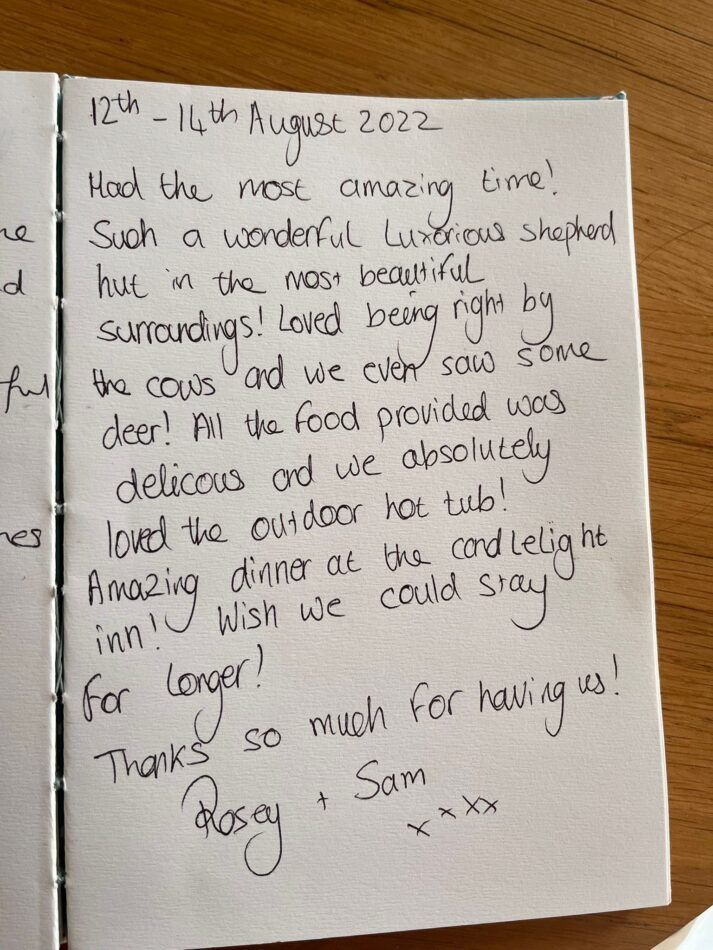 12th - 14th August 2022
Had the most amazing time!
Such a wonderful Luxorious shepherd
hut in the most beautiful
surroundings! Loved being right by
the cows and we even saw some
deer! All the food provided was
delicous and we absolutely
loved the outdoor hot tub!
Amazing dinner at the candlelight
inn! Wish we could stay
for longer!
Thanks so much for having us!
Rosey + Sam
x x x x
ful